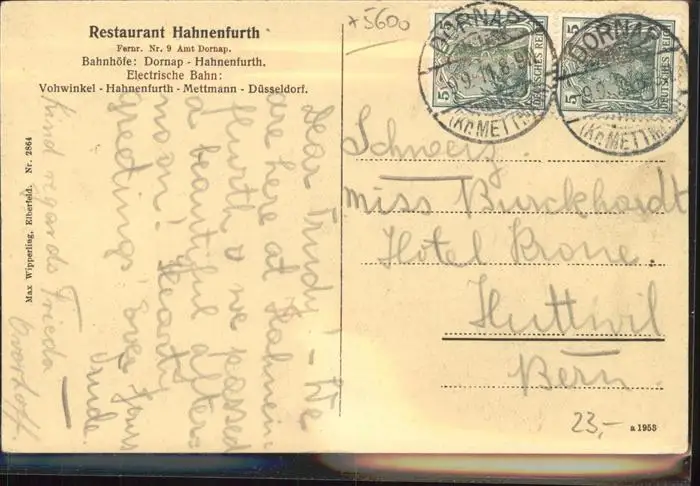 Restaurant Hahnenfurth
Fernr. Nr. 9 Amt Dornap.
Bahnhöfe: Dornap - Hahnenfurth.
Electrische Bahn:
Vohwinkel - Hahnenfurth - Mettmann - Düsseldorf.
Max Wipperling, Elberfeld. Nr. 2864
×5600
5 DEUTSCHES REICH
5 DEUTSCHES REICH
DORNAP
(Kr. METTM
DORNAP
(Kr. METTM
Dear Trudy! - We
are here at Hahnen-
furth & we passed
a beautiful after-
noon! Hearty
greetings
Kind regards Frieda
Schweiz.
Miss Burckhardt
Hotel Krone.
Huttwil
Bern.
23,-
a 1953